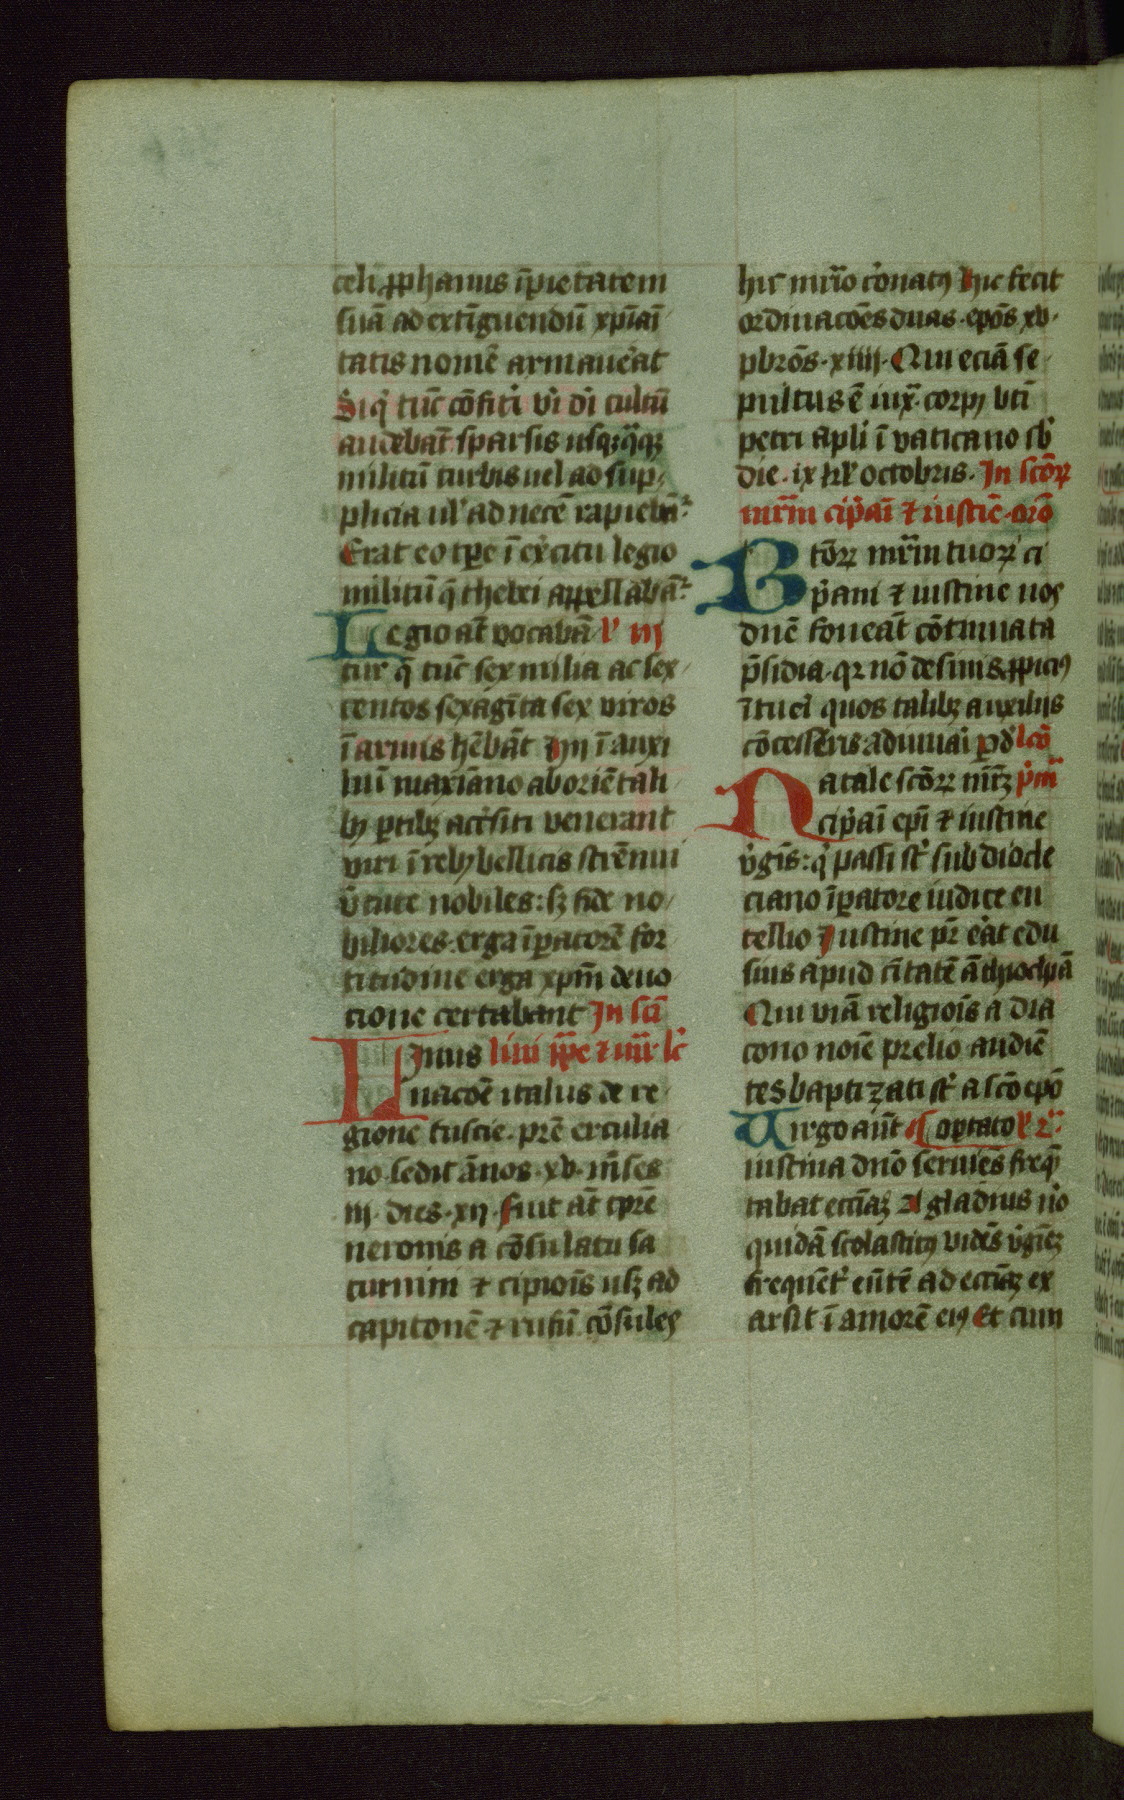 celi prophanus īpietatem
suā ad extīguendū xp̄iāi
tatis nomē armaue͛at
Siq' tūc cōfit͛i v͛i d͛i cultū
audebāt sparsis usqꝫ q̄qꝫ
militū turbis uel ad sup
plicia ul' ad necē rapiebāt᷑
Erat eo tp̄e ī ex͛citu legio
militū q̄ thebei appellabāt᷑
Legio at̄ vocabā l' iij
tur q̄ tūc sex milia ac sex
centos sexagīta sex viros
ī armis hēbāt
liū maxiāno ab oriētali
bꝯ ꝑtibꝫ acc͛siti venerant
viri ī rebꝯ bellicis strēnui
v͛tute nobiles: sꝫ fide no
biliores erga īꝑatorē for
titudine erga xp̄m deuo
cione certabant In sc̄i
Linus lini pp̄e ⁊ mr̄is lc̄
nacōe italus de re
gione tuscie pr̄e erculia
no sedit ānos xv mēses
iij dies xij fuit at̄ tp̄re
neronis a cōsulatu sa
turnini ⁊ cipiois usqꝫ ad
capitonē ⁊ rufū cōsules
hic mr̄io c͛onatꝯ hic fecit
ordinacōes duas ep̄os xv
pbr̄os xiiij Qui eciā se
pultus ē iux̄ corpꝯ bt̄i
petri apl̄i ī vaticano sb̄
die ix kl' octobris In sc̄oꝝ
mr̄im cip͛ai ⁊ iustiē orō
Btōꝝ mr̄im tuoꝝ ci
p͛ani ⁊ iustine nos
dn̄e foueāt cōtinuata
p̄sidia qꝛ nō desinis ꝓpiciꝯ
ītuei quos talibꝫ auxiliis
cōcesseris adiuuai ꝑ d' lc̄o
Natale sc̄oꝝ mr̄ꝫ p͛m̄
cip͛ai ep̄i ⁊ iustine
v͛gis: q͛ passi st̄ sub diocle
ciano īꝑatore iudice eu
tellio Iustine pr̄ e͛at edu
sius apud ciitatē āthyochyā
Qui viā religiois a dia
cono noīe prelio audiē
tes baptizati st̄ a sc̄o ep̄o
Uirgo aūt optato l' 2
iustina dn̄o seruiēs freq̄
tabat eccīaꝫ Agladius v͛o
quidā scolasticꝯ vidēs v͛giēꝫ
frequēt͛ eūtē ad eccīaꝫ ex
arsit ī amorē eiꝯ Et cum